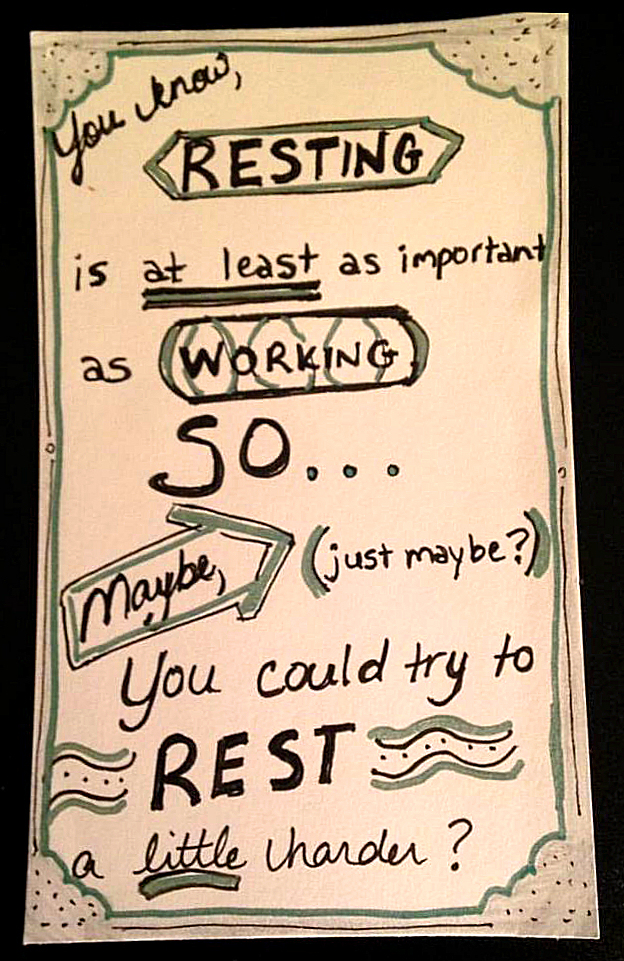 You know,
RESTING
is at least as important
as WORKING
SO...
Maybe, (just maybe?)
You could try to
REST
a little harder?